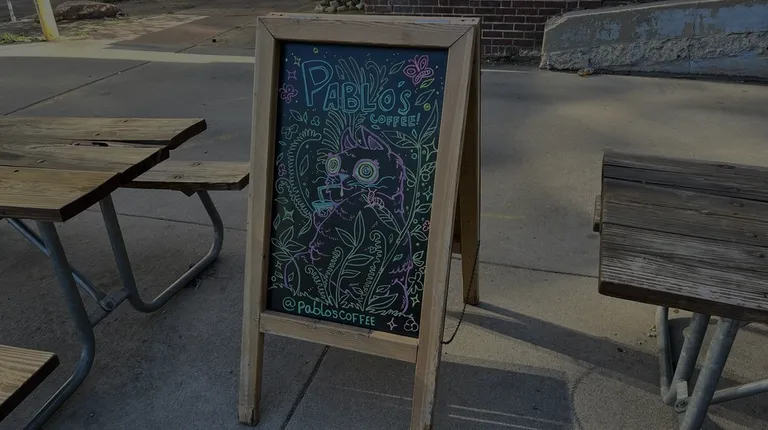 PABLO'S
COFFEE!
@pablo'sCOFFEE